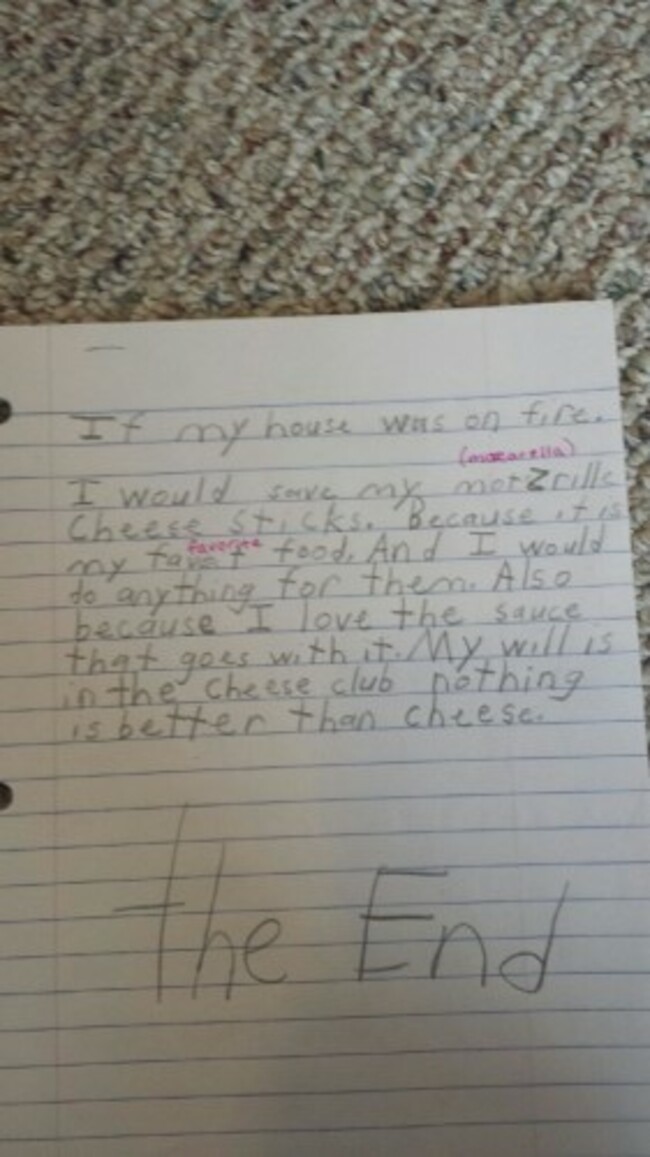 If my house was on fire.
(mozarella)
I would save my motzrille
Cheese Sticks. Because it is
favorite
my favot food. And I would
do anything for them. Also
because I love the sauce
that goes with it. My will is
in the cheese club nothing
is better than cheese.
The End